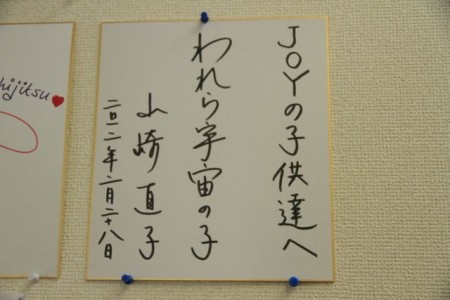 JOYの子供達へ
われら宇宙の子
山崎直子
二〇一二年二月二十八日
hijitsu